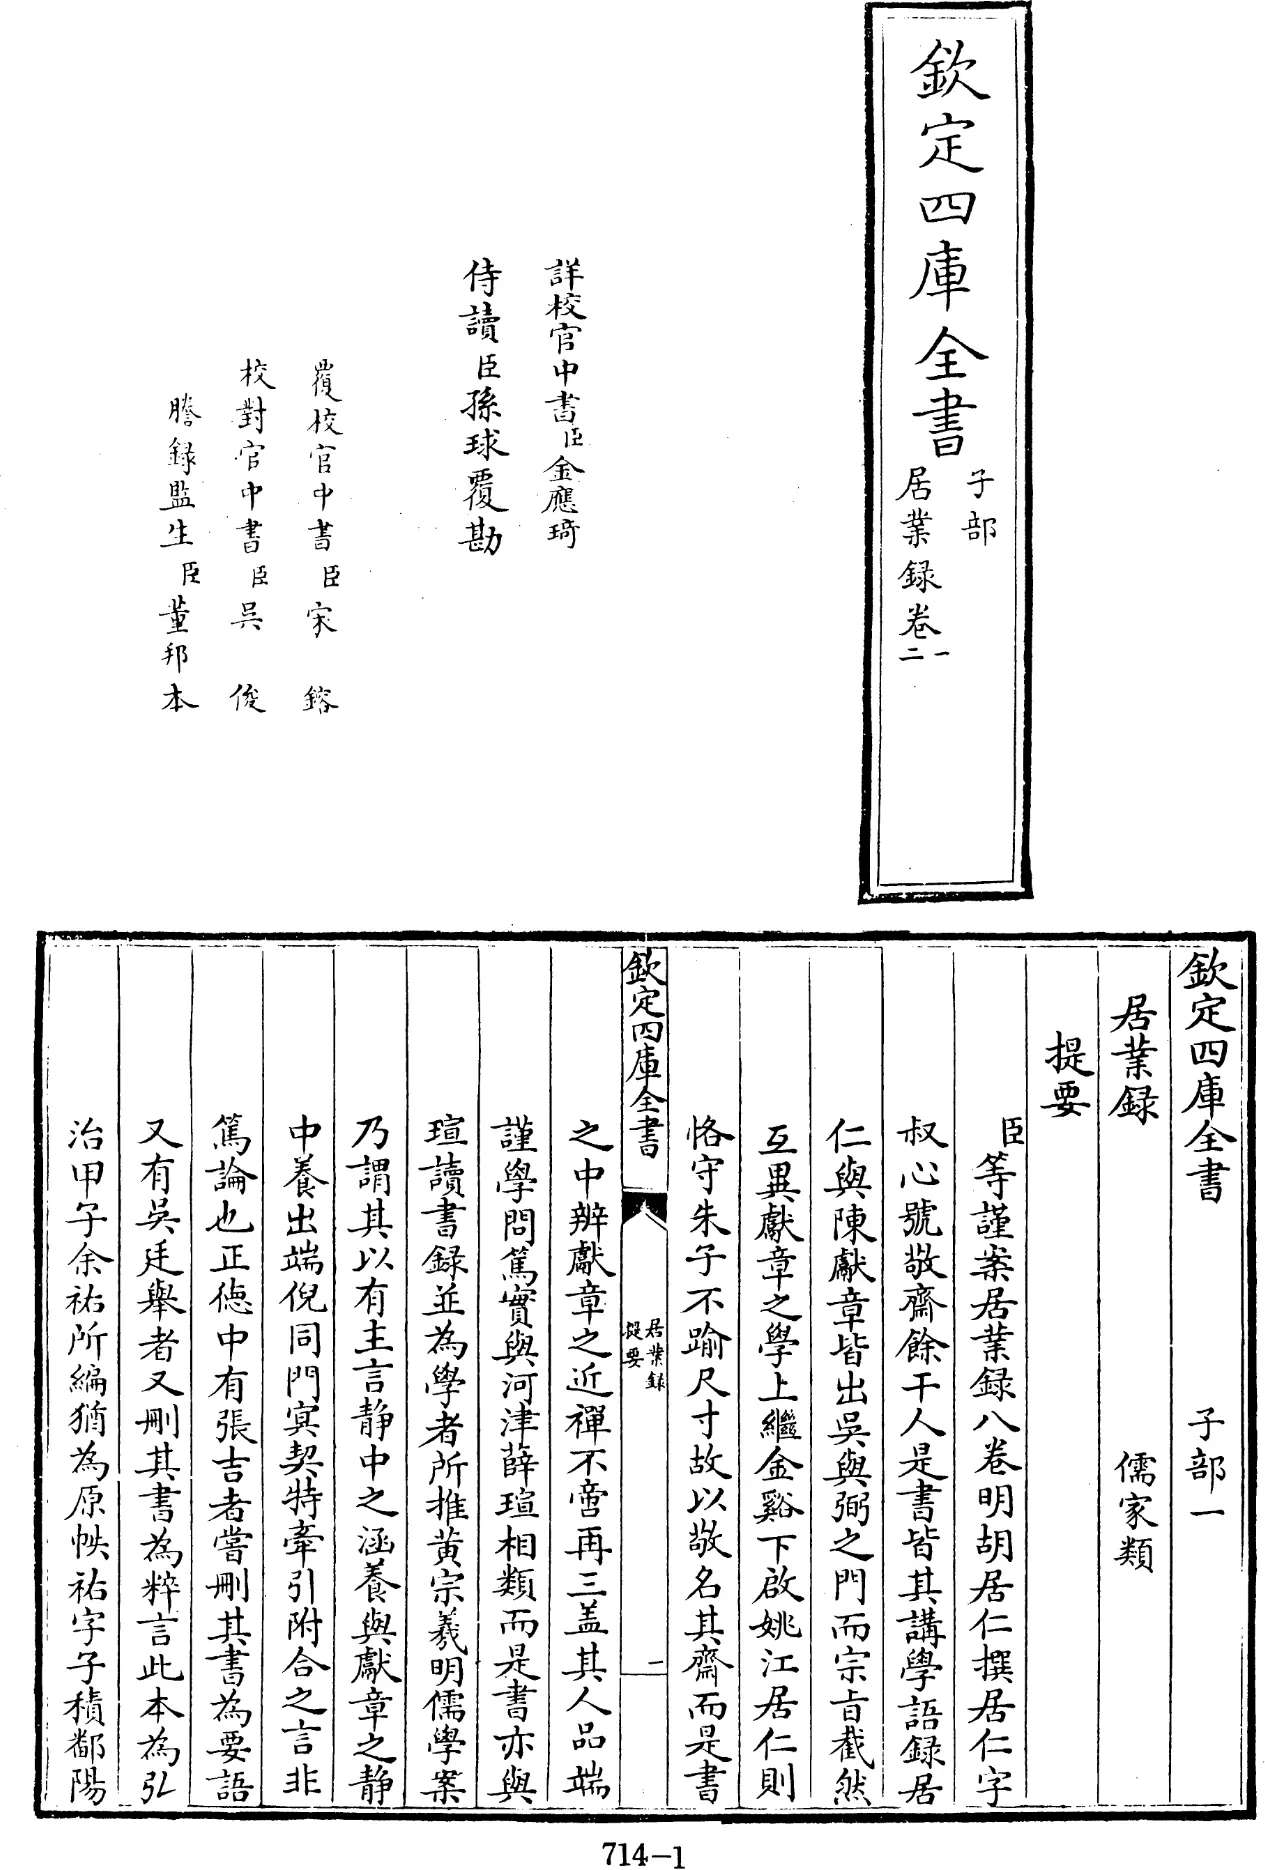 欽定四庫全書
子部
居業録卷一
二
詳校官中書臣金應琦
侍讀臣孫球覆勘
覆校官中書臣宋鎔
校對官中書臣吳俊
謄録監生臣董邦本
欽定四庫全書 子部一
居業録 儒家類
提要
臣等謹案居業録八卷明胡居仁撰居仁字
叔心號敬齋餘干人是書皆其講學語録居
仁與陳獻章皆出吳與弼之門而宗旨截然
互異獻章之學上繼金谿下啟姚江居仁則
恪守朱子不踰尺寸故以敬名其齋而是書
欽定四庫全書
居業録
提要
一
之中辨獻章之近禪不啻再三盖其人品端
謹學問篤實與河津薛瑄相類而是書亦與
瑄讀書録並為學者所推黄宗羲明儒學案
乃謂其以有主言静中之涵養與獻章之静
中養出端倪同門冥契特牽引附合之言非
篤論也正徳中有張吉者嘗刪其書為要語
又有吳廷舉者又刪其書為粹言此本為弘
治甲子余祐所編猶為原帙祐字子積鄱陽
714-1